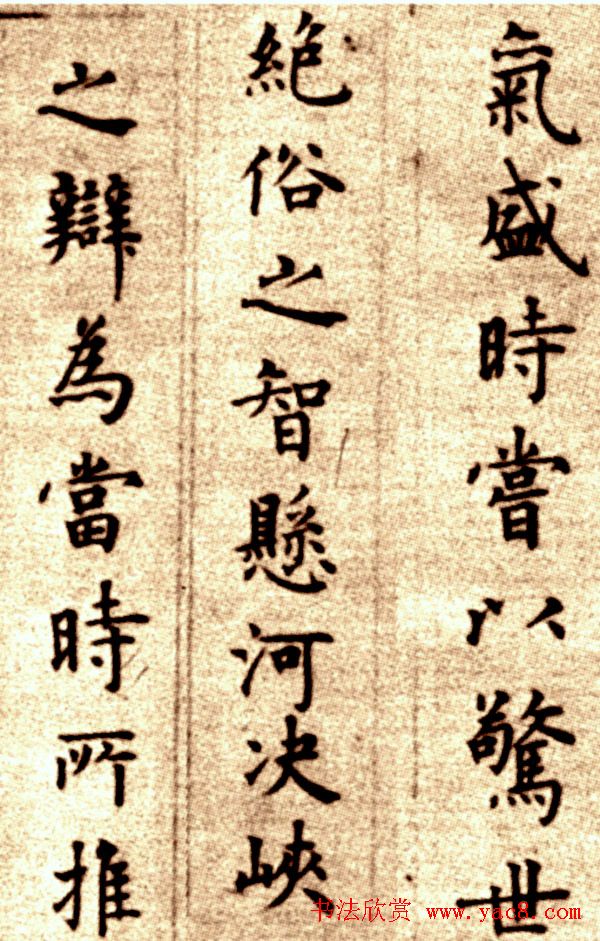 氣盛時嘗以驚世
絕俗之智懸河決峽
之辯為當時所推
书法欣赏 www.yac8.com